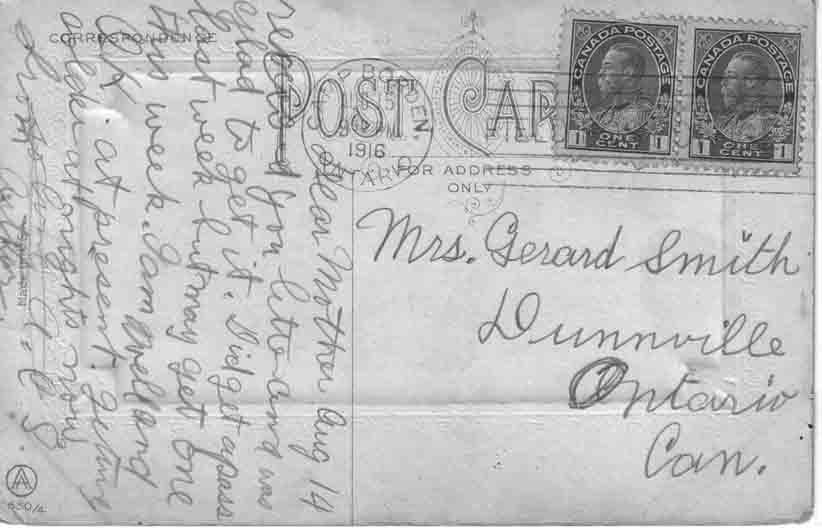 CORRESPONDENCE
POST CARD
FOR ADDRESS
ONLY
CANADA POSTAGE
1 ONE CENT 1
CANADA POSTAGE
1 ONE CENT 1
BORDEN
15
PM
1916
ONTARIO
Mrs. Gerard Smith
Dunnville
Ontario
Can.
Dear Mother Aug 14
received you letter and was
glad to get it. Did get a pass
last week but may get one
this week. I am well and
OK at present. Getting
a at nights now
from
A
630/4